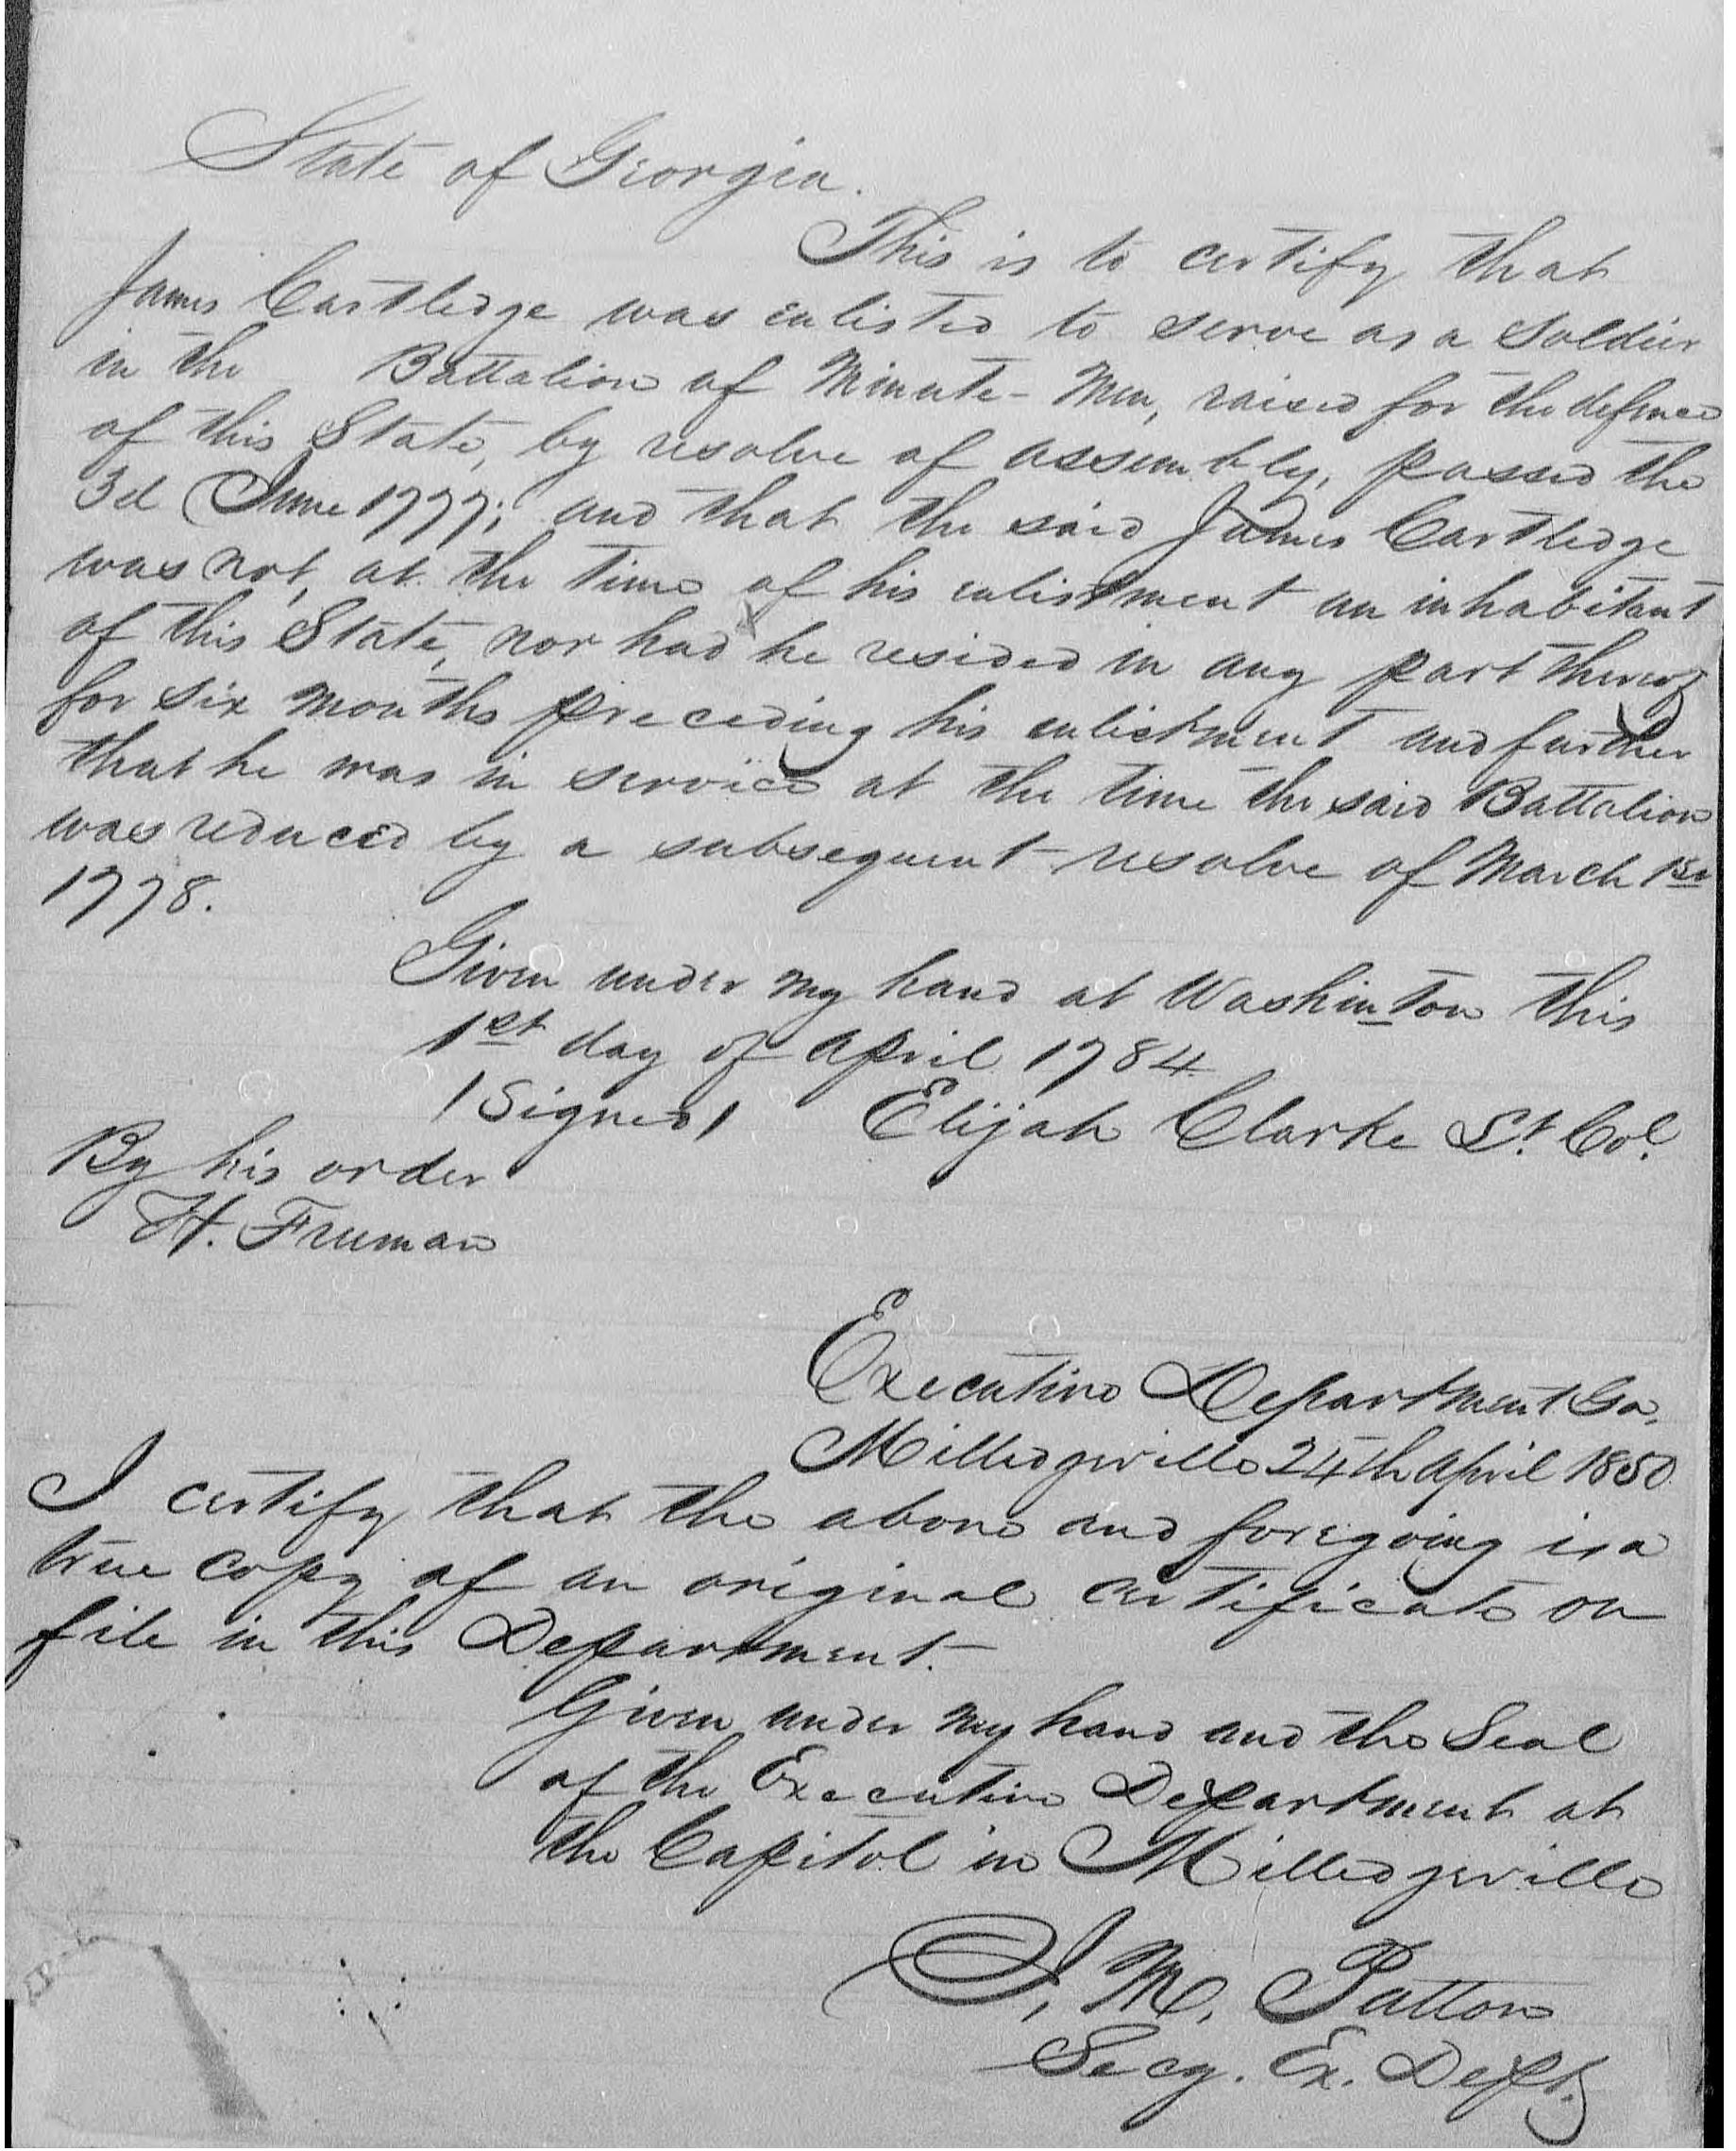 State of Georgia.
This is to certify that
James Cartledge was enlisted to serve as a Soldier
in the Battalion of Minute-Men, raised for the defence
of this State, by resolve of assembly, passed the
3d June 1777; and that the said James Cartledge
was not, at the time of his enlistment an inhabitant
of this State, nor had he resided in any part thereof
for six months preceding his enlistment and further
that he was in service at the time the said Battalion
was reduced by a subsequent resolve of March 1st
1778.
Given under my hand at Washinton this
1st day of April 1784
/Signed/ Elijah Clarke Lt. Col.
By his order
H. Freeman
Executive Department Ga,
Milledgeville 24th April 1850.
I certify that the above and foregoing is a
true copy of an original certificate on
file in this Department.
Given under my hand and the Seal
of the Executive Department at
the Capitol in Milledgeville
J. M. Patton
Secy. Ex. Dept.